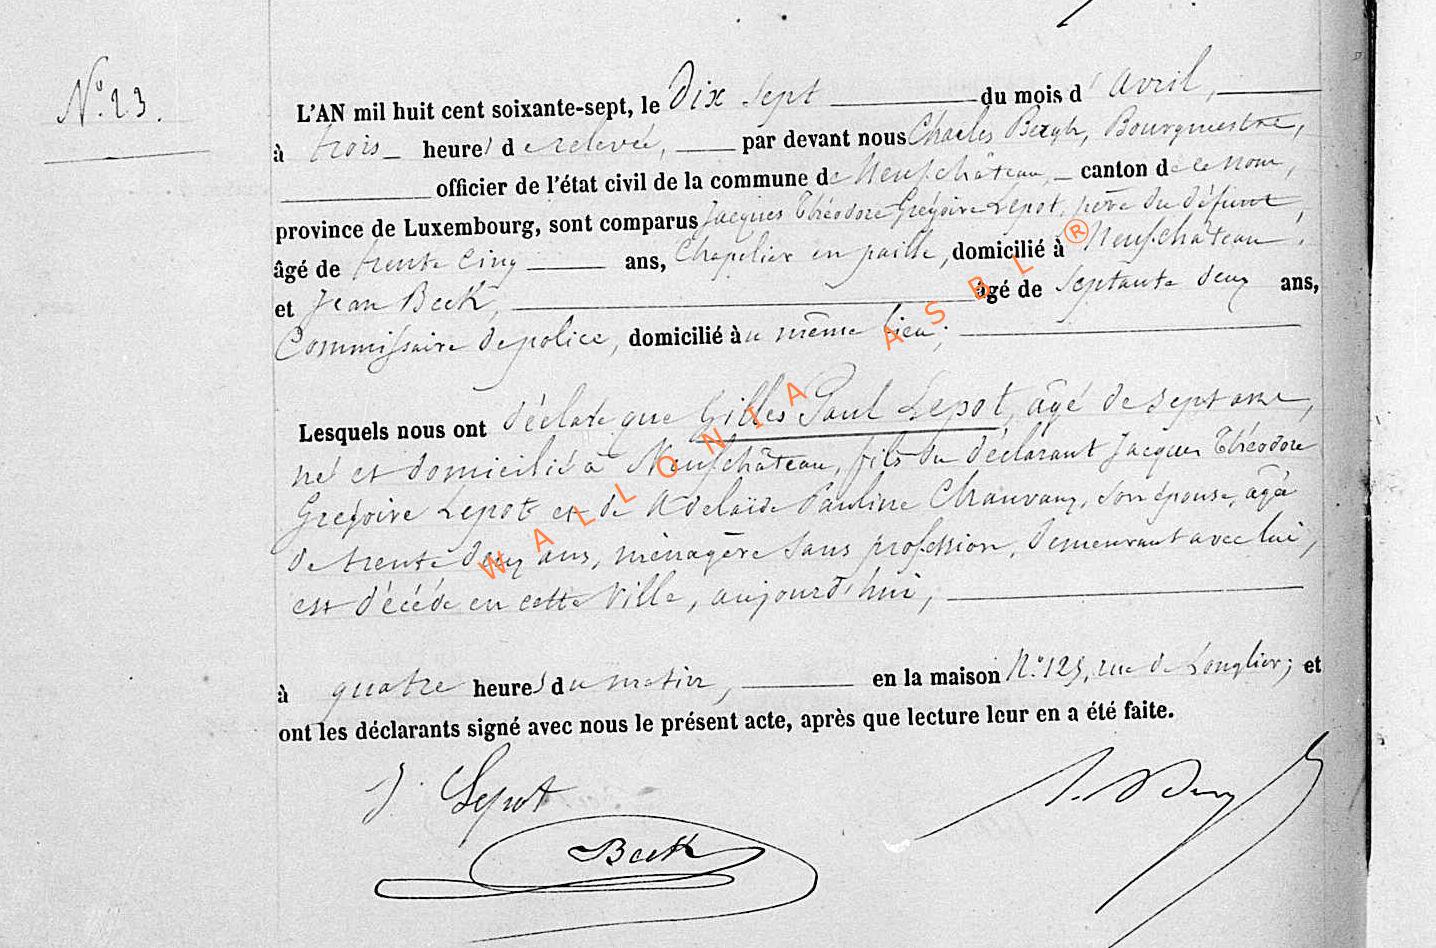 N° 23.
L'AN mil huit cent soixante-sept, le Dix sept du mois d'avril,
à trois heures de relevée, par devant nous Charles Bergh, Bourgmestre,
officier de l'état civil de la commune de Neufchâteau, canton de ce nom,
province de Luxembourg, sont comparus Jacques Théodore Grégoire Lepot, père du défunt,
âgé de trente cinq ans, Chapelier en paille, domicilié à Neufchâteau,
et Jean Beck, âgé de septante deux ans,
Commissaire de police, domicilié au même lieu;
Lesquels nous ont déclaré que Gilles Paul Lepot, âgé de sept ans,
né et domicilié à Neufchâteau, fils du déclarant Jacques Théodore
Grégoire Lepot et de Adelaïde Pauline Chauvaux, son épouse, âgée
de trente deux ans, ménagère sans profession, demeurant avec lui,
est décédé en cette Ville, aujourd'hui,
à quatre heures du matin, en la maison N° 125, rue de Longlier; et
ont les déclarants signé avec nous le présent acte, après que lecture leur en a été faite.
J. Lepot
Beck
WALLONIA ASBL ®